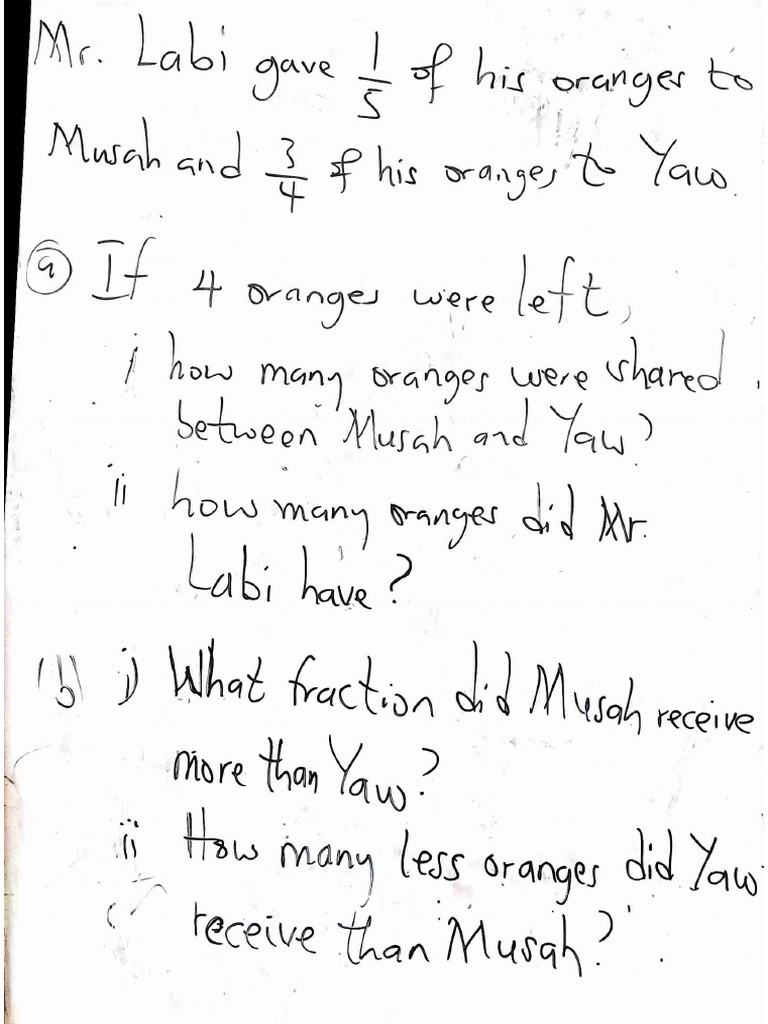 Mr. Labi gave 1/5 of his oranges to
Musah and 3/4 of his oranges to Yaw.
(a) If 4 oranges were left,
i how many oranges were shared
between Musah and Yaw?
ii how many oranges did Mr.
Labi have?
(b) i) What fraction did Musah receive
more than Yaw?
ii How many less oranges did Yaw
receive than Musah?